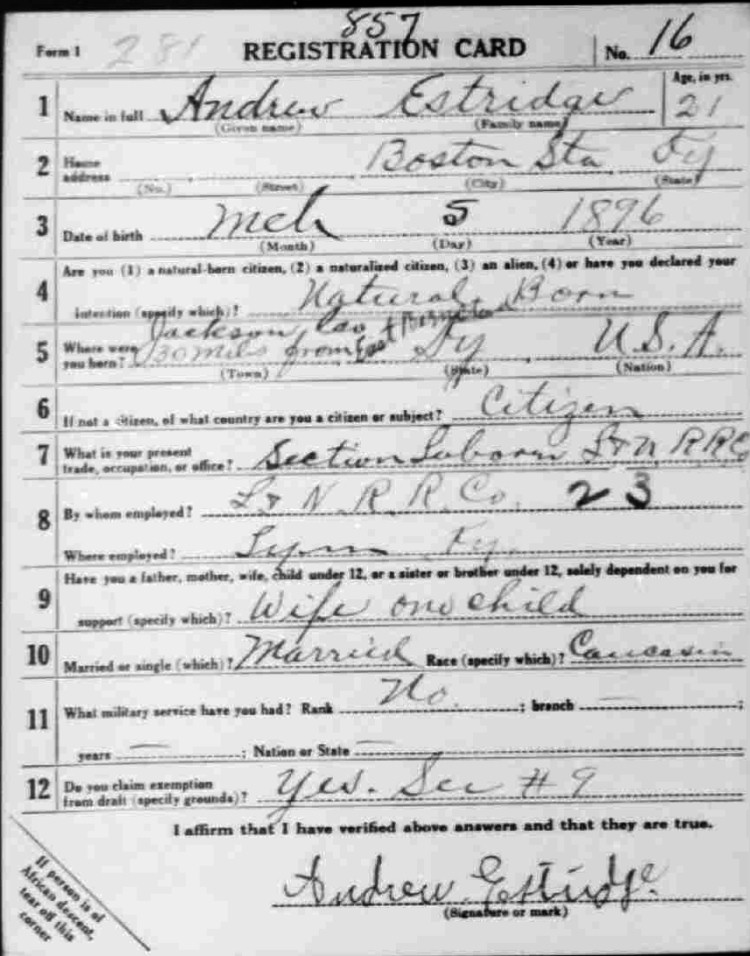 857
Form 1 281 REGISTRATION CARD No. 16
1 Name in full Andrew Estridge Age, in yrs. 21
(Given name) (Family name)
2 Home address Boston Sta Ky
(No.) (Street) (City) (State)
3 Date of birth Mch 5 1896
(Month) (Day) (Year)
Are you (1) a natural-born citizen, (2) a naturalized citizen, (3) an alien, (4) or have you declared your
4 intention (specify which)? Natural Born
Jackson Cao
5 Where were you born? 30 Miles from East Ky U.S.A.
(Town) (State) (Nation)
6 If not a citizen, of what country are you a citizen or subject? Citizen
7 What is your present trade, occupation, or office? Section Laborer L & N. R R Co
8 By whom employed? L & N R R. Co. 23
Where employed? Ky.
Have you a father, mother, wife, child under 12, or a sister or brother under 12, solely dependent on you for
9 support (specify which)? Wife one child
10 Married or single (which)? Married Race (specify which)? Caucasin
11 What military service have you had? Rank No. ; branch — ;
years — ; Nation or State —
12 Do you claim exemption from draft (specify grounds)? Yes. Sec # 9
I affirm that I have verified above answers and that they are true.
Andrew Estridge
(Signature or mark)
If person is of
African descent,
tear off this
corner